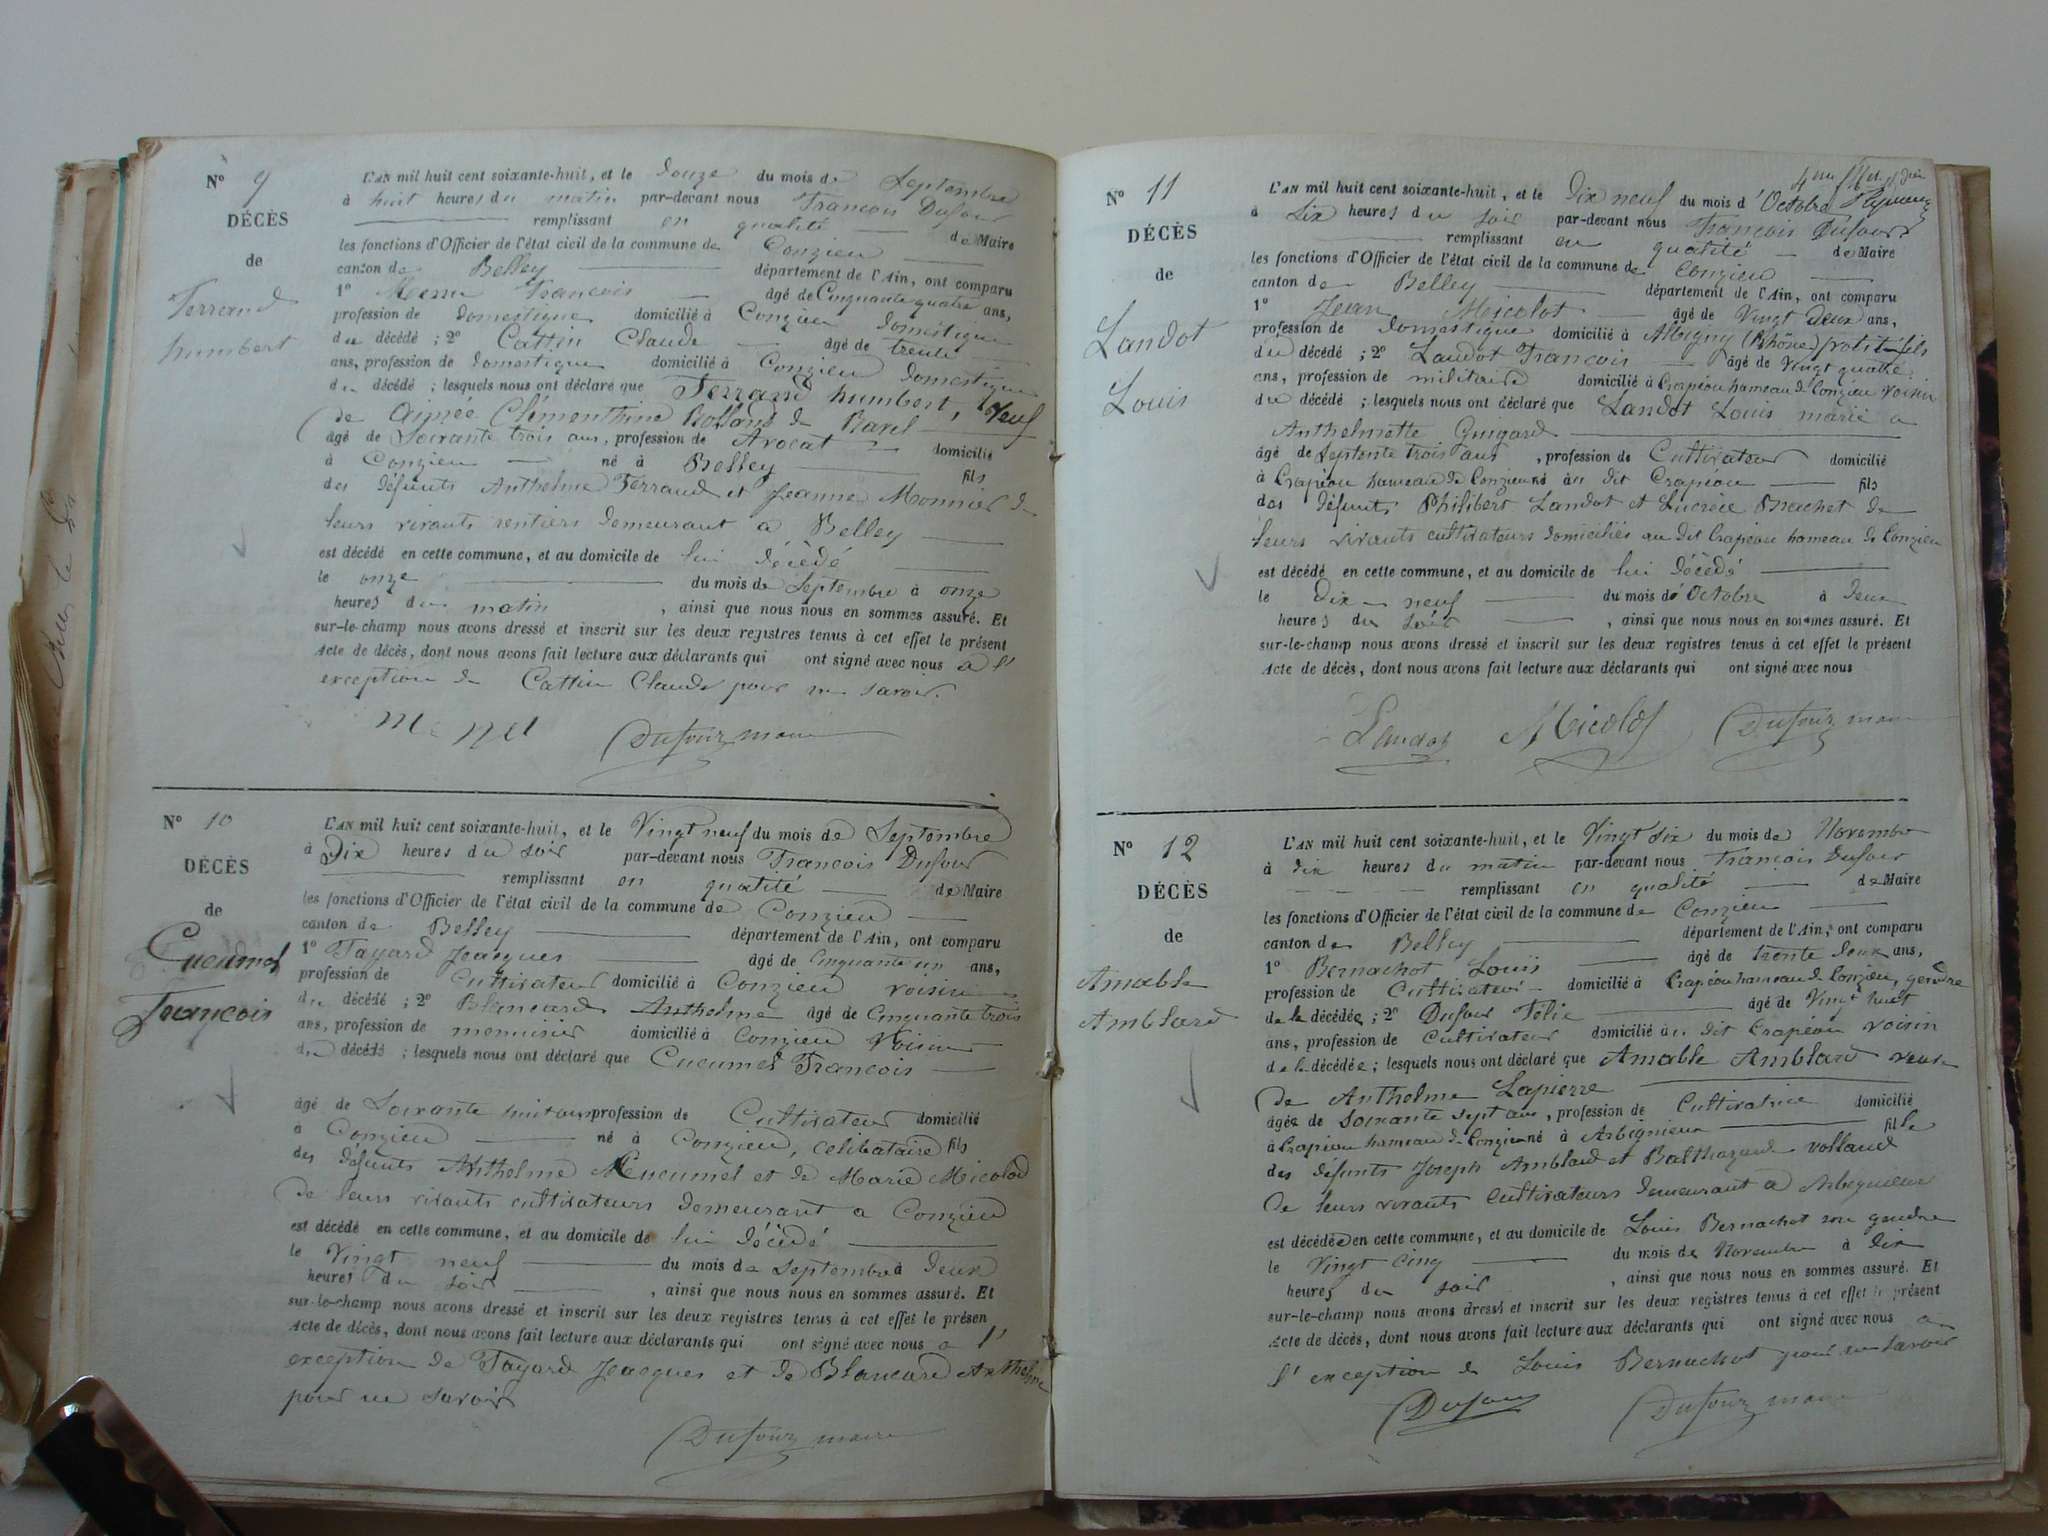 N° 9
DÉCÈS
de
Ferrand
humbert
L'AN mil huit cent soixante-huit, et le Douze du mois de Septembre
à huit heures du matin par-devant nous François Dufour
remplissant en qualité de Maire
les fonctions d'Officier de l'état civil de la commune de Conzieu
canton de Belley département de l'Ain, ont comparu
1° François âgé de Cinquante quatre ans,
profession de domestique domicilié à Conzieu domestique
du décédé ; 2° Cattin Claude âgé de trente
ans, profession de domestique domicilié à Conzieu domestique
du décédé ; lesquels nous ont déclaré que Ferrand humbert, Veuf
de Aimée Clémenthine Rolland de Ravel
âgé de Soixante trois ans, profession de Avocat domicilié
à Conzieu né à Belley fils
des défunts Anthelme Ferrand et Jeanne Monnier de
leurs vivants rentiers demeurant a Belley
est décédé en cette commune, et au domicile de lui décèdé
le onze du mois de Septembre à onze
heures du matin, ainsi que nous nous en sommes assuré. Et
sur-le-champ nous avons dressé et inscrit sur les deux registres tenus à cet effet le présent
Acte de décès, dont nous avons fait lecture aux déclarants qui ont signé avec nous a l'
exception de Cattin Claude pour ne savoir.
Dufour maire
N° 10
DÉCÈS
de
Cucumel
François
L'AN mil huit cent soixante-huit, et le Vingt neuf du mois de Septembre
à Dix heures du soir par-devant nous François Dufour
remplissant en qualité de Maire
les fonctions d'Officier de l'état civil de la commune de Conzieu
canton de Belley département de l'Ain, ont comparu
1° Tayard Jacques âgé de Cinquante un ans,
profession de Cultivateur domicilié à Conzieu voisin
du décédé ; 2° Blancard Anthelme âgé de Cinquante trois
ans, profession de menuisier domicilié à Conzieu Voisin
du décédé ; lesquels nous ont déclaré que Cucumel François
âgé de Soixante huit ans profession de Cultivateur domicilié
à Conzieu né à Conzieu, celibataire fils
des défunts Anthelme Cucumel et de Marie Micolod
De leurs vivants cultivateurs Demeurant a Conzieu
est décédé en cette commune, et au domicile de lui décèdé
le Vingt neuf du mois de Septembre à deux
heures du soir, ainsi que nous nous en sommes assuré. Et
sur-le-champ nous avons dressé et inscrit sur les deux registres tenus à cet effet le présen
Acte de décès, dont nous avons fait lecture aux déclarants qui ont signé avec nous a l'
exception de Tayard Jacques et de Blancard Anthelme
pour ne savoir
Dufour maire
N° 11
DÉCÈS
de
Landot
Louis
L'AN mil huit cent soixante-huit, et le Dix neuf du mois d'Octobre
à Six heures du soir par-devant nous François Dufour
remplissant en qualité de Maire
les fonctions d'Officier de l'état civil de la commune de Conzieu
canton de Belley département de l'Ain, ont comparu
1° Jean Micolot âgé de Vingt Deux ans,
profession de domestique domicilié à Albigny (Rhône) petit-fils
du décédé ; 2° Landot François âgé de Vingt quatre
ans, profession de militaire domicilié à Crapéou hameau de Conzieu voisin
du décédé ; lesquels nous ont déclaré que Landot Louis marié a
Anthelmette Guigard
âgé de Septente trois ans, profession de Cultivateur domicilié
à Crapéou hameau de Conzieu né au dit Crapéou fils
des défunts Philibert Landot et Lucrèce Brachet de
leurs vivants cultivateurs domiciliés au dit Crapéou hameau de Conzieu
est décédé en cette commune, et au domicile de lui décèdé
le Dix neuf du mois d'Octobre à deux
heures du soir, ainsi que nous nous en sommes assuré. Et
sur-le-champ nous avons dressé et inscrit sur les deux registres tenus à cet effet le présent
Acte de décès, dont nous avons fait lecture aux déclarants qui ont signé avec nous
Landot Micolot Dufour maire
N° 12
DÉCÈS
de
Amable
Amblard
L'AN mil huit cent soixante-huit, et le Vingt six du mois de Novembre
à dix heures du matin par-devant nous François Dufour
remplissant en qualité de Maire
les fonctions d'Officier de l'état civil de la commune de Conzieu
canton de Belley département de l'Ain, ont comparu
1° Bernachot Louis âgé de trente deux ans,
profession de Cultivateur domicilié à Crapéou hameau de Conzieu, gendre
de la décédée ; 2° Dufour Félix âgé de Vingt huit
ans, profession de Cultivateur domicilié au dit Crapéou voisin
de la décédée ; lesquels nous ont déclaré que Amable Amblard veuve
De Anthelme Lapierre
âgée de Soixante sept ans, profession de Cultivatrice domicilié
à Crapéou hameau de Conzieu né à Arbignieu fille
des defunts Joseph Amblard et Balthazarde Volland
De leurs vivants Cultivateurs demeurant a Arbignieu
est décédée en cette commune, et au domicile de Louis Bernachot son gendre
le Vingt Cinq du mois de Novembre à dix
heures du soir, ainsi que nous nous en sommes assuré. Et
sur-le-champ nous avons dressé et inscrit sur les deux registres tenus à cet effet le présent
Acte de décès, dont nous avons fait lecture aux déclarants qui ont signé avec nous a
l'exception de Louis Bernachot pour ne savoir
Dufour Dufour maire